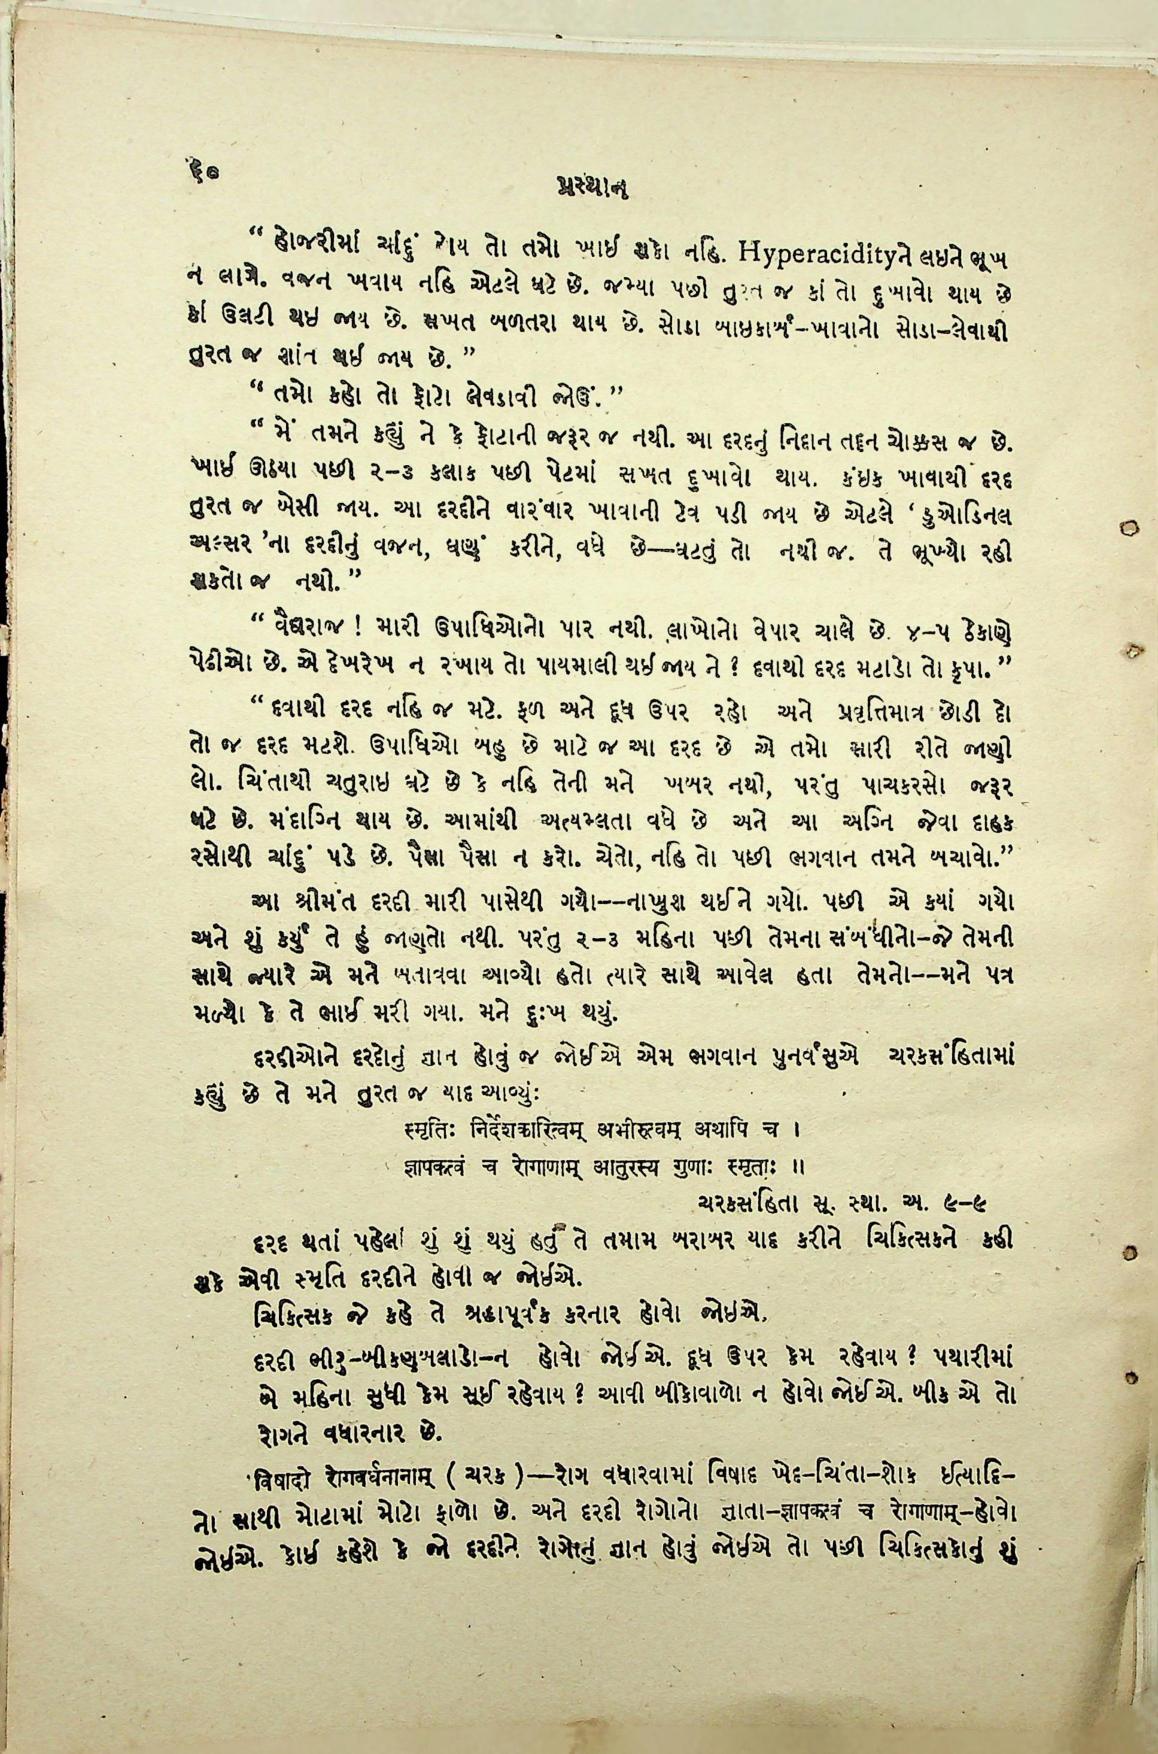 ૬૦
પ્રસ્થાન
“ હોજરીમાં ચાંદું હોય તો તમો ખાઈ શકો નહિ. Hyperacidityને લઇને ભૂખ
ન લાગે. વજન ખવાય નહિ એટલે ઘટે છે. જમ્યા પછી તુરત જ કાં તો દુખાવો થાય છે
કાં ઉલટી થઇ જાય છે. સખત બળતરા થાય છે. સોડા બાઇકાર્બ-ખાવાનો સોડા-લેવાથી
તુરત જ શાંત થઈ જાય છે.”
“ તમો કહો તો ફોટો લેવડાવી જોઉં.”
“ મેં તમને કહ્યું ને કે ફોટાની જરૂર જ નથી. આ દરદનું નિદાન તદ્દન ચોક્કસ જ છે.
ખાઈ ઊઠયા પછી ૨-૩ કલાક પછી પેટમાં સખત દુખાવો થાય. કંઇક ખાવાથી દરદ
તુરત જ બેસી જાય. આ દરદીને વારંવાર ખાવાની ટેવ પડી જાય છે એટલે ‘ ડુઓડિનલ
અલ્સર ’ના દરદીનું વજન, ઘણું કરીને, વધે છે—ઘટતું તો નથી જ. તે ભૂખ્યો રહી
શકતો જ નથી.”
“ વૈદ્યરાજ ! મારી ઉપાધિઓનો પાર નથી. લાખોનો વેપાર ચાલે છે. ૪-૫ ઠેકાણે
પેઢીઓ છે. એ દેખરેખ ન રખાય તો પાયમાલી થઈ જાય ને ? દવાથી દરદ મટાડો તો કૃપા.”
“ દવાથી દરદ નહિ જ મટે. ફળ અને દૂધ ઉપર રહો અને પ્રવૃત્તિમાત્ર છોડી દો
તો જ દરદ મટશે. ઉપાધિઓ બહુ છે માટે જ આ દરદ છે એ તમો સારી રીતે જાણી
લો. ચિંતાથી ચતુરાઇ ઘટે છે કે નહિ તેની મને ખબર નથી, પરંતુ પાચકરસો જરૂર
ઘટે છે. મંદાગ્નિ થાય છે. આમાંથી અત્યમ્લતા વધે છે અને આ અગ્નિ જેવા દાહક
રસોથી ચાંદું પડે છે. પૈસા પૈસા ન કરો. ચેતો, નહિ તો પછી ભગવાન તમને બચાવો.”
આ શ્રીમંત દરદી મારી પાસેથી ગયો--નાખુશ થઈને ગયો. પછી એ કયાં ગયો
અને શું કર્યું તે હું જાણતો નથી. પરંતુ ૨-૩ મહિના પછી તેમના સંબંધીનો-જે તેમની
સાથે જ્યારે એ મને બતાવવા આવ્યો હતો ત્યારે સાથે આવેલ હતા તેમનો--મને પત્ર
મળ્યો કે તે ભાઈ મરી ગયા. મને દુઃખ થયું.
દરદીઓને દરદોનું જ્ઞાન હોવું જ જોઈએ એમ ભગવાન પુનર્વસુએ ચરકસંહિતામાં
કહ્યું છે તે મને તુરત જ યાદ આવ્યું:
स्मृतिः निर्देशकारित्वम् अभीरुत्वम् अथापि च ।
ज्ञापकत्वं च रोगाणाम् आतुरस्य गुणाः स्मृताः ॥
ચરકસંહિતા સૂ. સ્થા. અ. ૯-૯
દરદ થતાં પહેલાં શું શું થયું હતું તે તમામ બરાબર યાદ કરીને ચિકિત્સકને કહી
શકે એવી સ્મૃતિ દરદીને હોવી જ જોઈએ.
ચિકિત્સક જે કહે તે શ્રદ્ધાપૂર્વક કરનાર હોવો જોઇએ.
દરદી ભીરુ-બીકણબલાડો-ન હોવો જોઈએ. દૂધ ઉપર કેમ રહેવાય ? પથારીમાં
બે મહિના સુધી કેમ સૂઈ રહેવાય ? આવી બીકોવાળો ન હોવો જોઈએ. બીક એ તો
રોગને વધારનાર છે.
विषादो रोगवर्धनानाम् ( ચરક )—રોગ વધારવામાં વિષાદ ખેદ-ચિંતા-શોક ઈત્યાદિ-
નો સાથી મોટામાં મોટો ફાળો છે. અને દરદી રોગોનો જ્ઞાતા-ज्ञापकत्वं च रोगाणाम्-હોવો
જોઈએ. કોઇ કહેશે કે જો દરદીને રોગોનું જ્ઞાન હોવું જોઈએ તો પછી ચિકિત્સકોનું શું